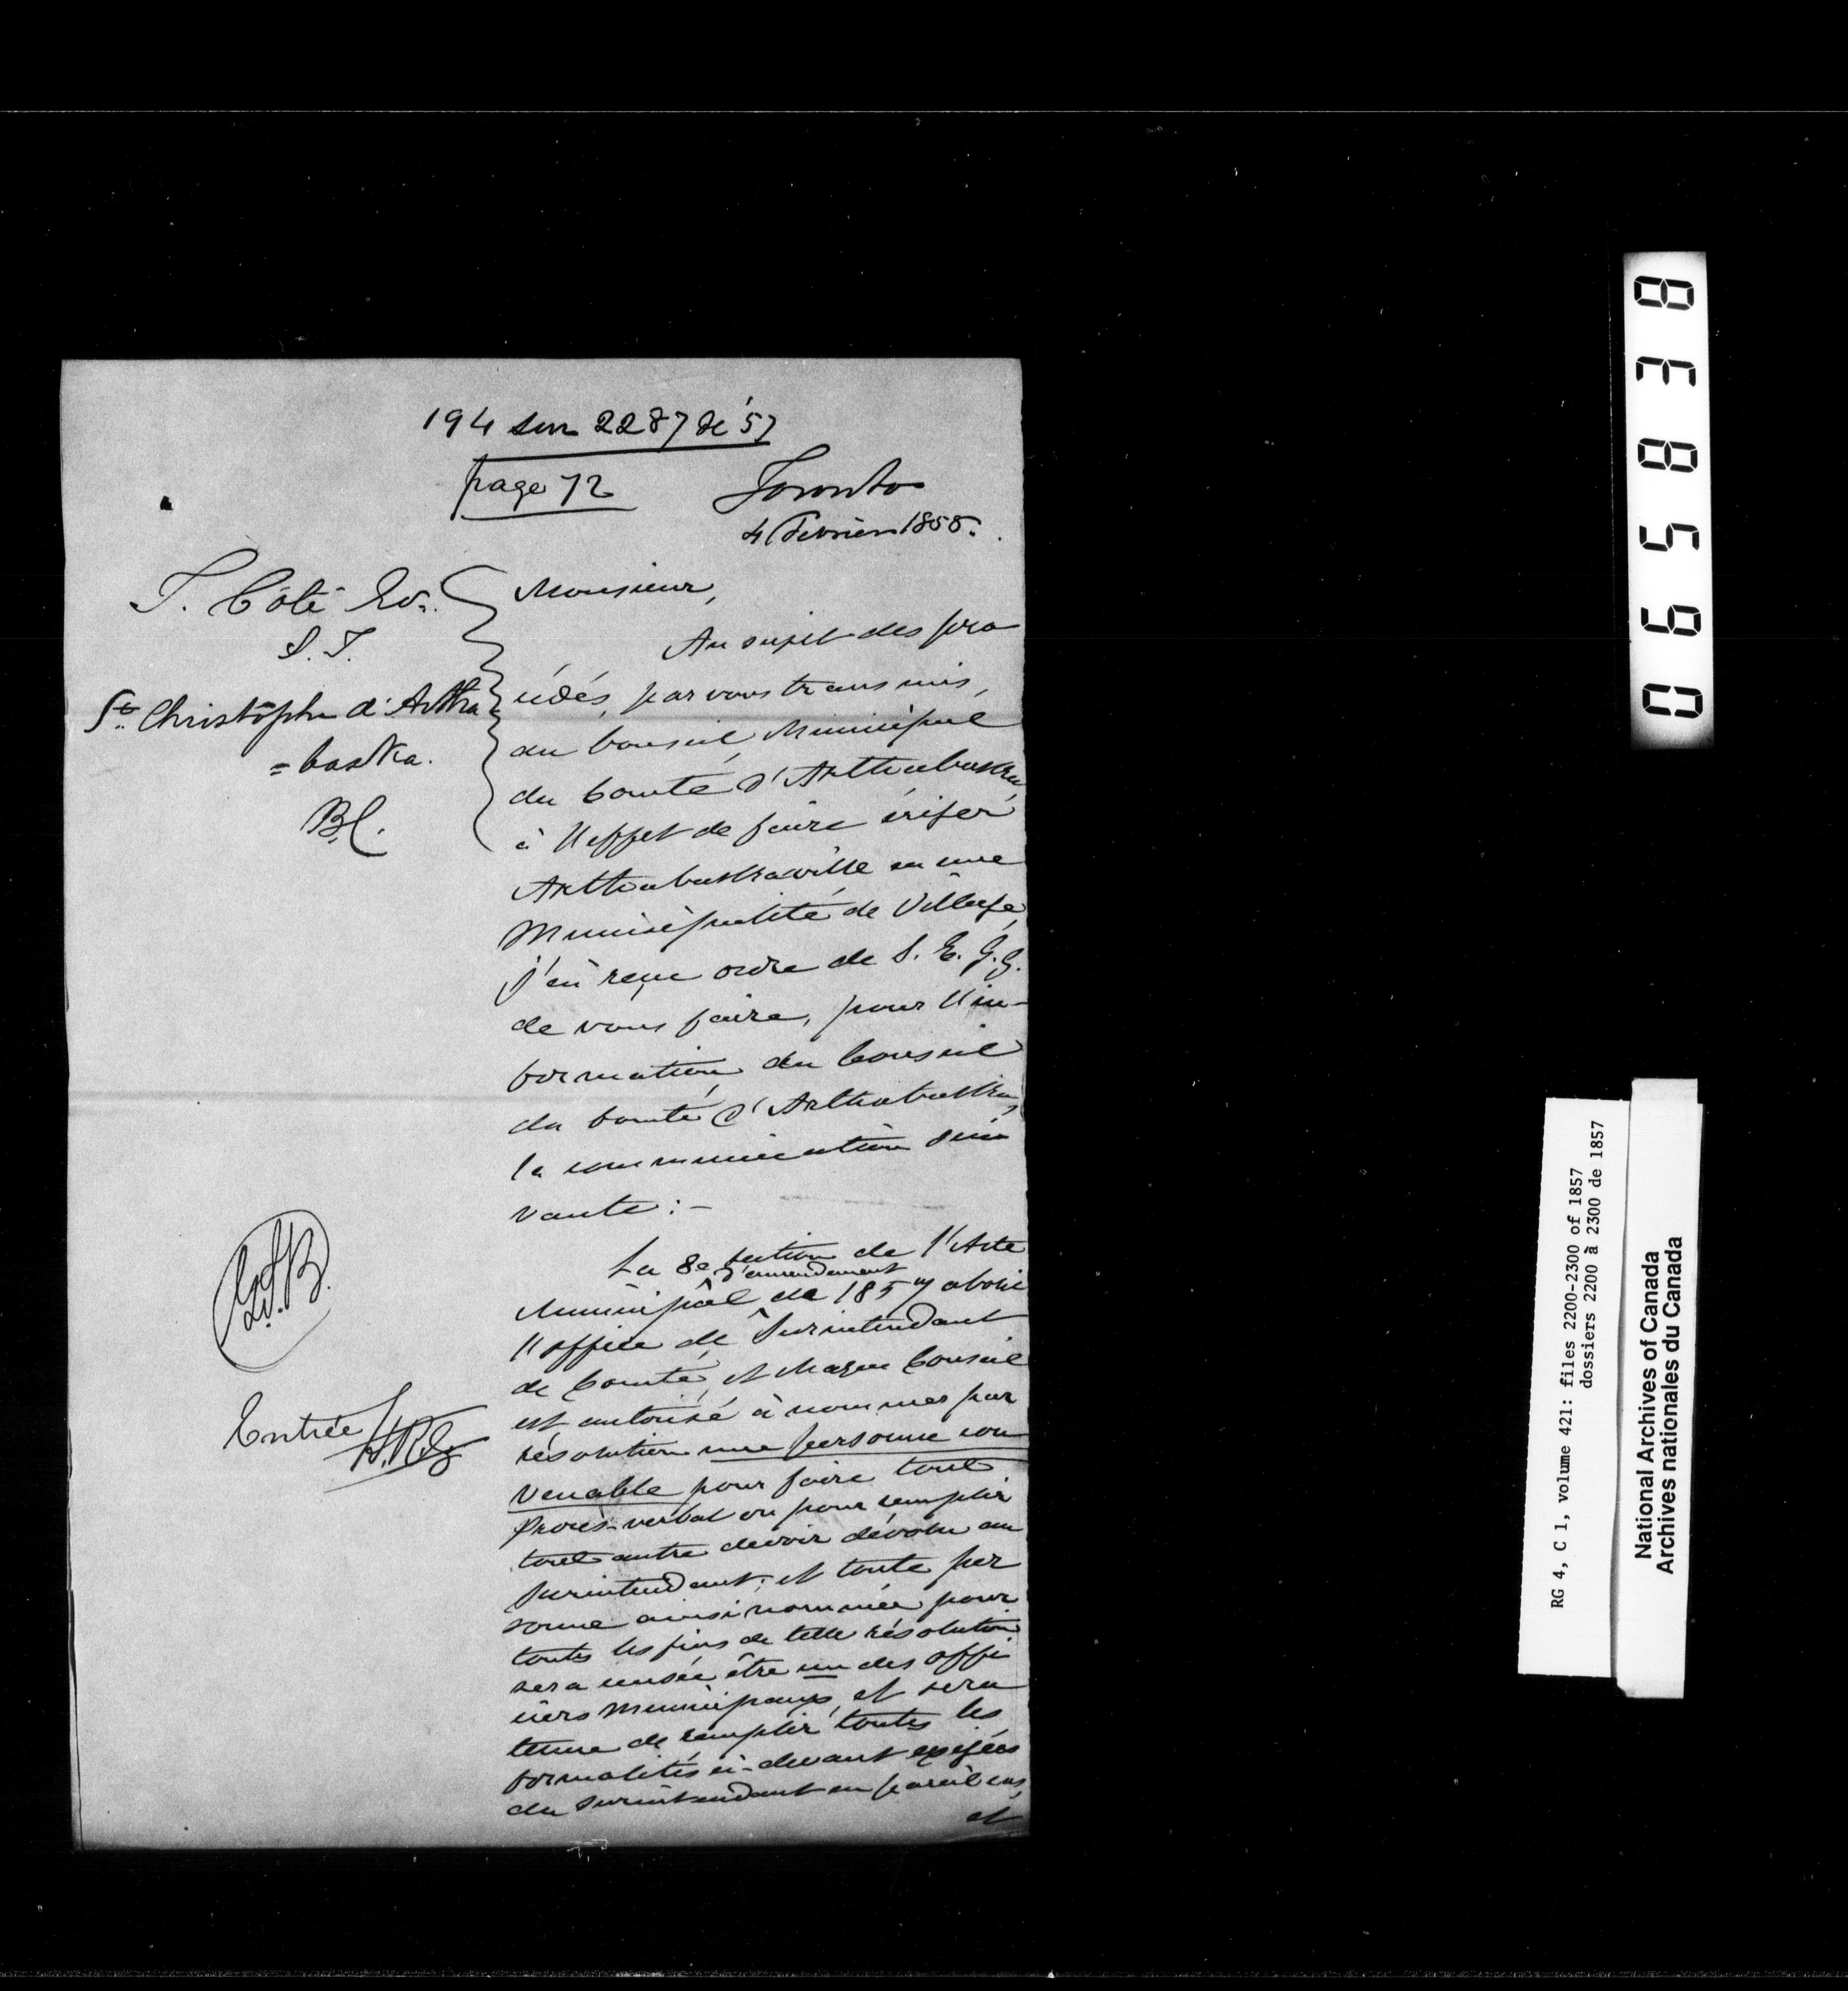 194 sur 2287 de '57
page 72
Toronto
4 Février 1858.
T. Côté Ecr.
S. T.
St. Christophe d'Artha
=baska.
B.C.
Monsieur,
Au sujet des pro
cédés, par vous transmis,
du Conseil Municipal
du Comté d'Arthabaska,
à l'effet de faire ériger
Arthabaskaville en une
Municipalité de Village,
j'ai reçu ordre de S. E. G. G.
de vous faire, pour l'in-
formation du Conseil
du Comté d'Arthabaska,
la communication sui
vante :-
La 8e section de l'Acte
d'amendement
Municipal de 1857 abolit
l'office de Surintendant
de Comté, et chaque Conseil
est autorisé à nommer par
résolution une personne con
venable pour faire tout
procès-verbal ou pour remplir
tout autre devoir dévolu au
surintendant; et toute per
sonne ainsi nommée pour
toutes les fins de telle résolution
sera censée être un des offi
ciers municipaux, et sera
tenue de remplir toutes les
formalités ci-devant exigées
du surintendant en pareil cas,
et
Entrée
065838
RG 4, C 1, volume 421: files 2200-2300 of 1857
dossiers 2200 à 2300 de 1857
National Archives of Canada
Archives nationales du Canada